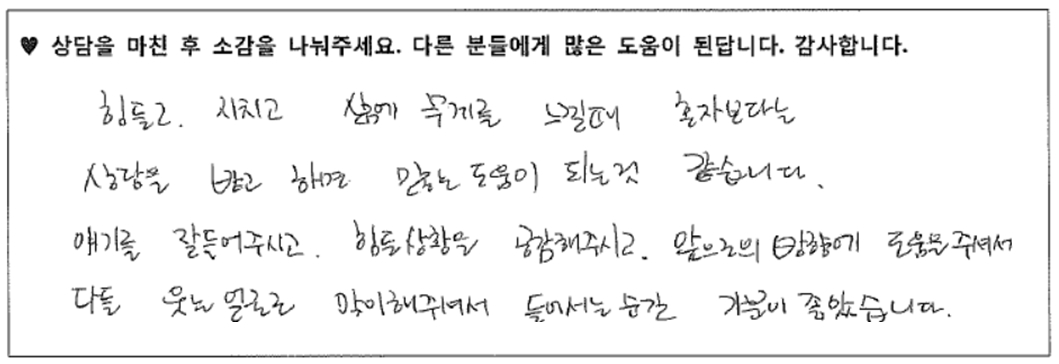 ♥ 상담을 마친 후 소감을 나눠주세요. 다른 분들에게 많은 도움이 된답니다. 감사합니다.
힘들고. 지치고 삶에 무게를 느낄때 혼자보다는
상담을 받고 하면 많은 도움이 되는것 같습니다.
얘기를 잘들어주시고. 힘든상황을 공감해주시고. 앞으로의 방향에 도움을주셔서
다들 웃는얼굴로 맞이해주셔서 들어서는순간 기분이 좋았습니다.